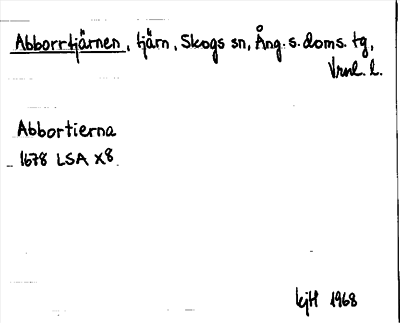 Abborrtjärnen, tjärn, Skogs sn, Ång. s. doms. tg,
Vrnl. l.
Abbortierna
1678 LSA X8
kjH 1968